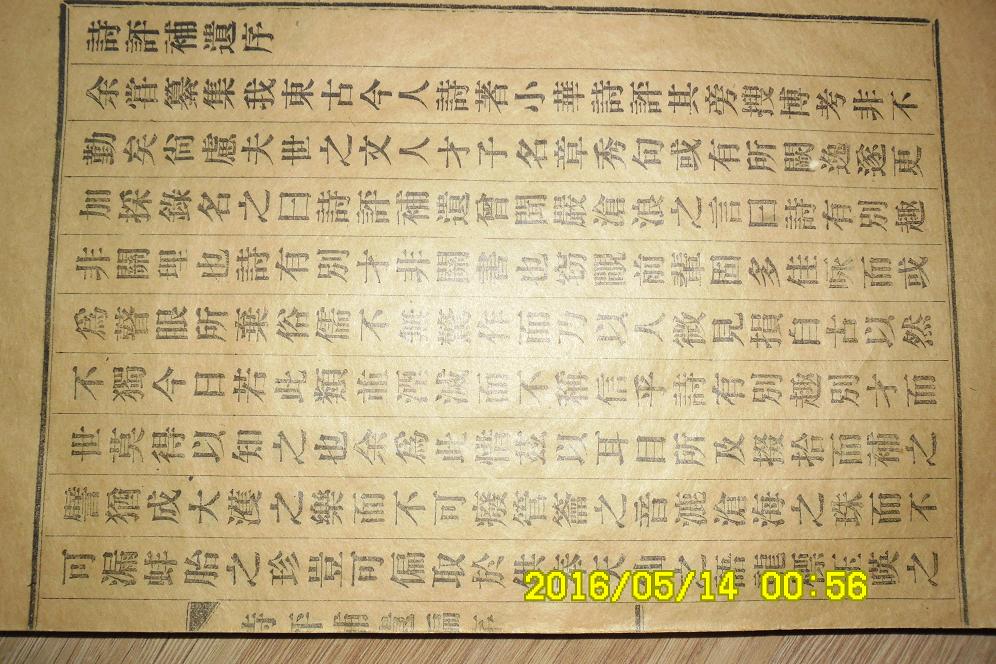 詩評補遺序
余嘗纂集我東古今人詩著小華詩評其旁搜博考非不
勤矣尙慮夫世之文人才子名章秀句或有所闕逸遂更
加採錄名之曰詩評補遺嘗聞嚴滄浪之言曰詩有別趣
非關理也詩有別才非關書也窃覸前輩固多佳咏而或
爲瞽眼所棄俗儒不作而乃以人微見損自古以然
不獨今日若此類並湮滅而不稱信乎詩有別趣別才而
世莫得以知之也余爲此惜玆以耳目所及掇拾而補之
譬猶成大濩之樂而不可廢管籥之音漉滄海之珠而不
可漏蚌胎之珍豈可偏取於之
2016/05/14 00:56